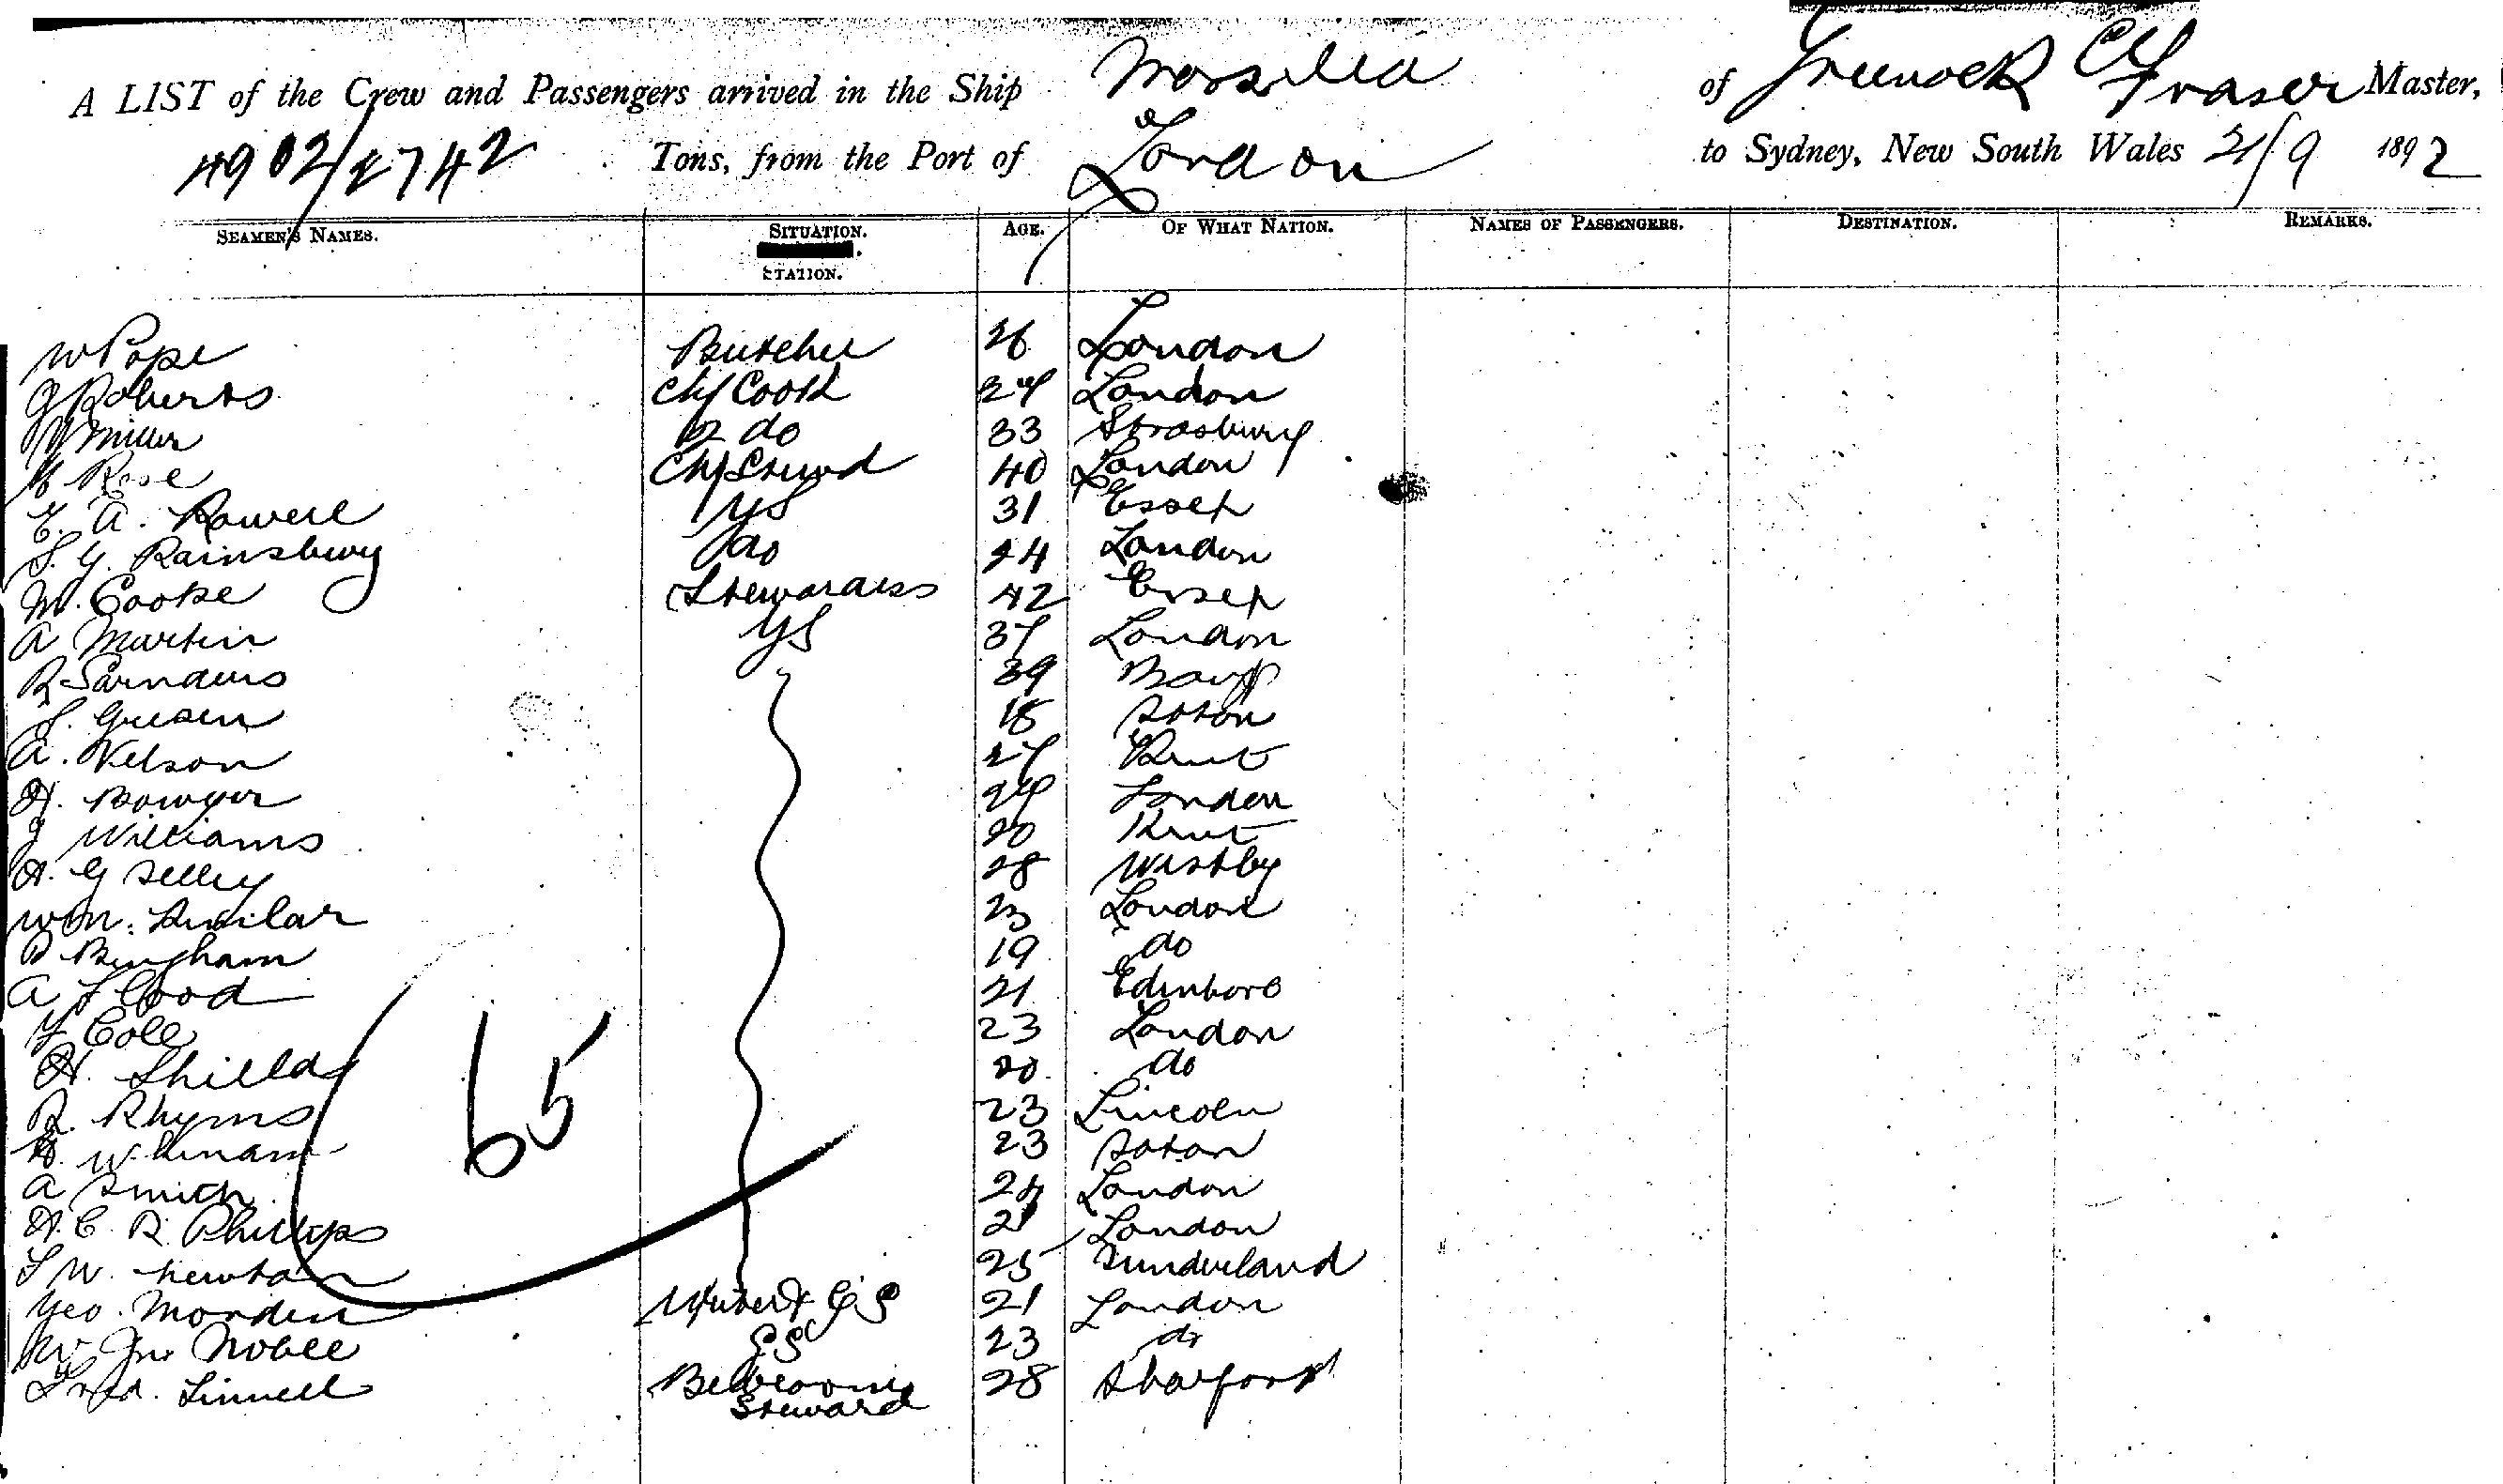 A LIST of the Crew and Passengers arrived in the Ship Massilia of Greenock Fraser Master,
4902/2742 Tons, from the Port of London to Sydney, New South Wales 21/9 1892
SEAMEN'S NAMES. SITUATION. STATION. AGE. OF WHAT NATION. NAMES OF PASSENGERS. DESTINATION. REMARKS.
W Pope Butcher 26 London
G Roberts Chf Cook London
W Miller 2 do 33 Strasburg
Rose Chf Stewd 40 London
E. A. Rowell GS 31 Essex
S. G. Rainsbury do 44 London
M. Cooke Stewardess 42 Essex
A Martin GS 37 London
R Saunders 39
J. 18 Soton
A. Nelson 27 Kent
H. Bowyer London
J Williams 20 Kent
H. G Selley 28 Westby
Wm. 23 London
Bingham 19 do
A Flood 21 Edinboro
Cole 23 London
H. Shields 20 do
R. Rhyms 23 Lincoln
23 Soton
A Smith 24 London
H. C. R. Phillips 21 London
S W. Newton 25 Sunderland
Geo. Morden GS 21 London
W Jno Noble GS 23 do
Fred. Linnell Bedroom Steward 28
65